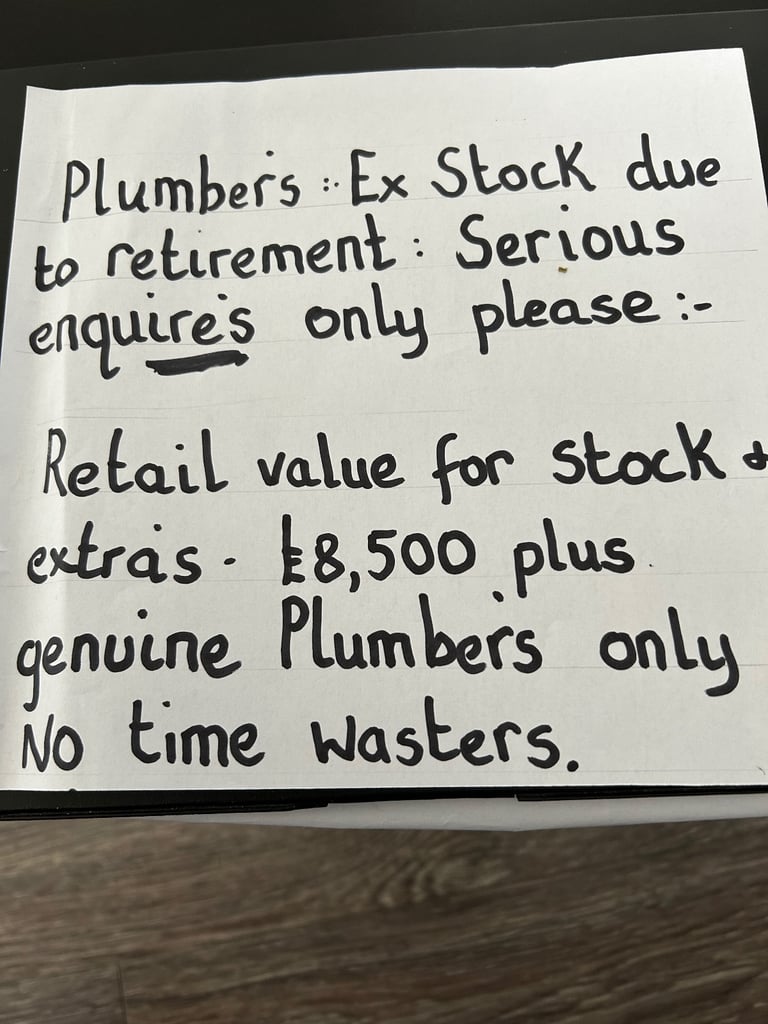 Plumber's :- Ex Stock due
to retirement : Serious
enquire's only please :-
Retail value for stock &
extra's - £8,500 plus
genuine Plumber's only
No time wasters.